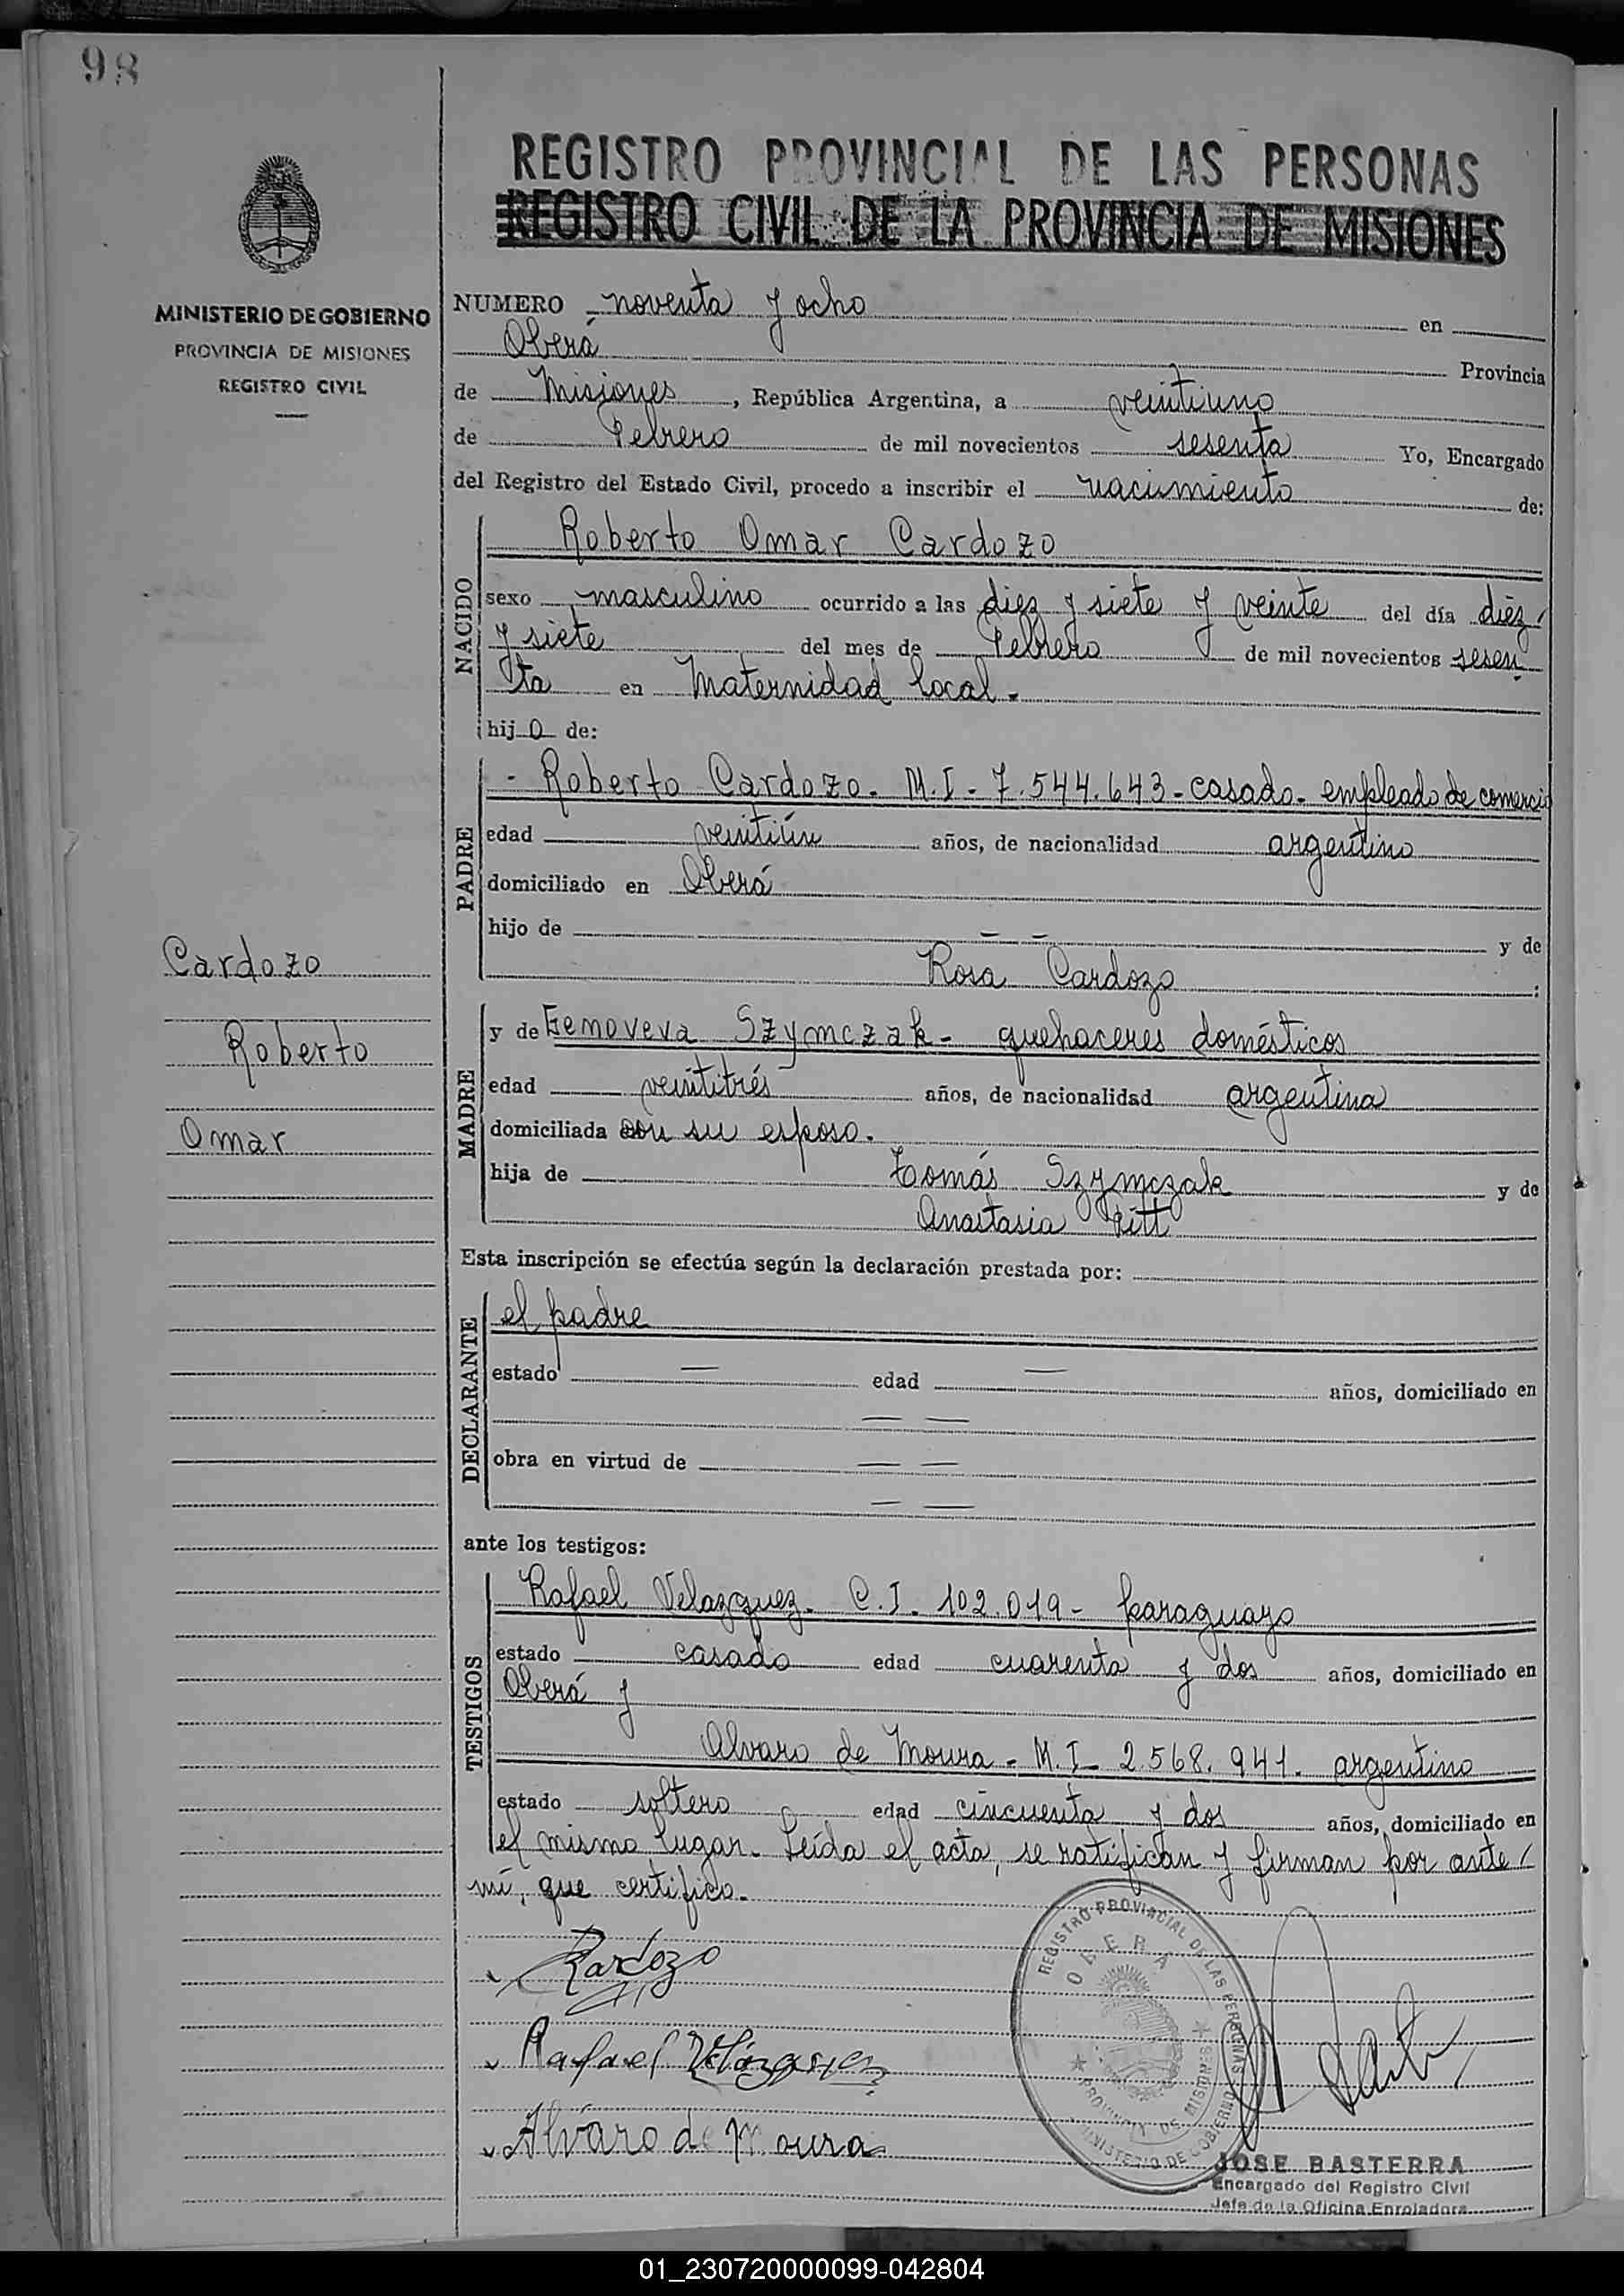 98
REGISTRO PROVINCIAL DE LAS PERSONAS
REGISTRO CIVIL DE LA PROVINCIA DE MISIONES
MINISTERIO DE GOBIERNO
PROVINCIA DE MISIONES
REGISTRO CIVIL
NUMERO noventa y ocho en
Oberá Provincia
de Misiones, República Argentina, a veintiuno
de Febrero de mil novecientos sesenta Yo, Encargado
del Registro del Estado Civil, procedo a inscribir el nacimiento de:
NACIDO
Roberto Omar Cardozo
sexo masculino ocurrido a las diez y siete y veinte del día diez
y siete del mes de Febrero de mil novecientos sesen
ta en Maternidad local.
hijo de:
PADRE
- Roberto Cardozo. M.I. 7.544.643 - casado. empleado de comercio
edad veintiún años, de nacionalidad argentino
domiciliado en Oberá
hijo de — — y de
Rosa Cardozo ;
Cardozo
Roberto
Omar
MADRE
y de Genoveva Szymczak - quehaceres domésticos
edad veintitrés años, de nacionalidad argentina
domiciliada con su esposo.
hija de Tomás Szymczak y de
Anastasia
Esta inscripción se efectúa según la declaración prestada por:
DECLARANTE
el padre
estado — edad — años, domiciliado en
— —
obra en virtud de — —
— —
ante los testigos:
TESTIGOS
Rafael Velazquez. C.I. 102.019 - paraguayo
estado casado edad cuarenta y dos años, domiciliado en
Oberá y
Alvaro de Moura - M.I. 2.568.941. argentino
estado soltero edad cincuenta y dos años, domiciliado en
el mismo lugar. Leída el acta, se ratifican y firman por ante
mí, que certifico.
RCardozo
Rafael Velázquez
Alvaro de Moura
REGISTRO PROVINCIAL DE LAS PERSONAS
OBERA
PROVINCIA DE MISIONES
MINISTERIO DE GOBIERNO
JOSE BASTERRA
Encargado del Registro Civil
Jefe de la Oficina Enroladora
01_230720000099-042804